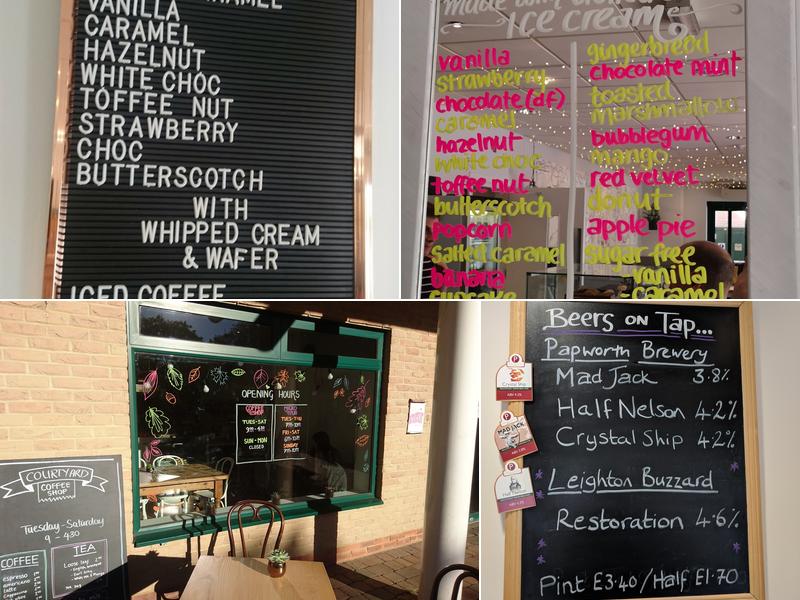 VANILLA
CARAMEL
HAZELNUT
WHITE CHOC
TOFFEE NUT
STRAWBERRY
CHOC
BUTTERSCOTCH
WITH
WHIPPED CREAM
& WAFER
ICED COFFEE
Ice cream
vanilla
strawberry
chocolate (df)
caramel
hazelnut
white choc
toffee nut
butterscotch
popcorn
salted caramel
banana
cupcake
gingerbread
chocolate mint
toasted
marshmallow
bubblegum
mango
red velvet
donut
apple pie
sugar free
-vanilla
-caramel
OPENING HOURS
COFFEE
SHOP
TUES-SAT
SUN-MON
CLOSED
TUES-THU
FRI-SAT
SUNDAY
COURTYARD
COFFEE
SHOP
Tuesday-Saturday
9 - 430
COFFEE
espresso
americano
latte
TEA
Loose leaf
Beers on Tap...
Papworth Brewery
Mad Jack 3.8%
Half Nelson 4.2%
Crystal Ship 4.2%
Leighton Buzzard
Restoration 4.6%
Pint £3.40/Half £1.70
Crystal Ship
MAD JACK